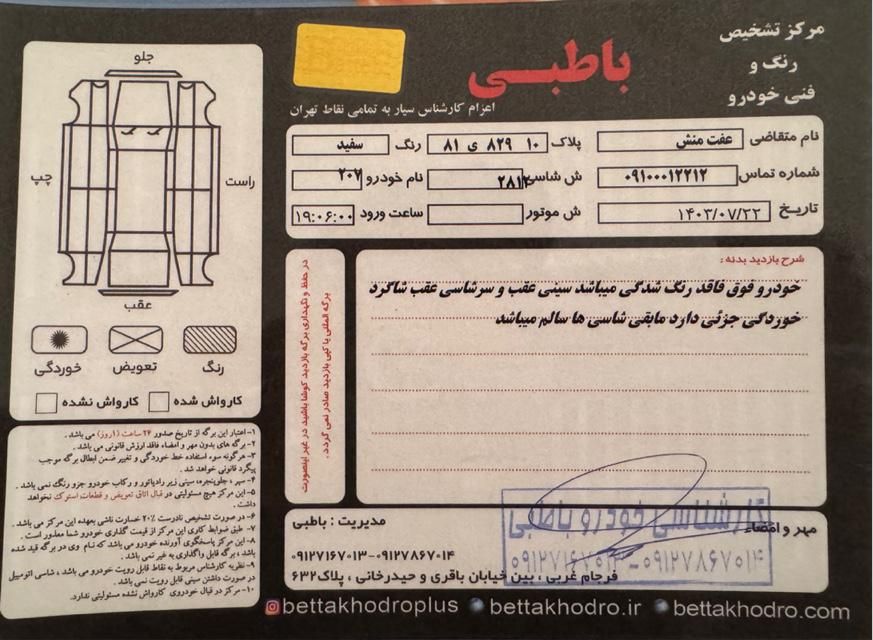 مرکز تشخیص
رنگ و
فنی خودرو
باطبی
اعزام کارشناس سیار به تمامی نقاط تهران
نام متقاضی عفت منش پلاک ۱۰ ۸۲۹ ی ۸۱ رنگ سفید
شماره تماس ۰۹۱۰۰۰۱۲۲۱۲ ش شاسی ۲۸۱۲ نام خودرو ۲۰۷
تاریخ ۱۴۰۳/۰۷/۲۲ ش موتور ساعت ورود ۱۹:۰۶:۰۰
شرح بازدید بدنه :
خودرو فوق فاقد رنگ شدگی میباشد سینی عقب و سرشاسی عقب شاگرد
خوردگی جزئی دارد مابقی شاسی ها سالم میباشد
در حفظ و نگهداری برگه بازدید کوشا باشید در غیر اینصورت
برگه المثنی یا کپی بازدید صادر نمی گردد .
جلو
راست
چپ
عقب
رنگ تعویض خوردگی
کارواش شده کارواش نشده
۱- اعتبار این برگه از تاریخ صدور ۲۴ ساعت (۱روز) می باشد .
۲- برگه های بدون مهر و امضاء فاقد ارزش قانونی می باشد .
۳- هرگونه سوء استفاده خط خوردگی و تغییر ضمن ابطال برگه موجب
پیگرد قانونی خواهد شد .
۴- سپر ، جلوپنجره، سینی زیر رادیاتور و رکاب خودرو جزو رنگ نمی باشد .
۵- این مرکز هیچ مسئولیتی در قبال اتاق تعویض و قطعات استوک نخواهد
داشت .
۶- در صورت تشخیص نادرست ۲۰٪ خسارت ناشی بعهده این مرکز می باشد .
۷- طبق ضوابط کاری این مرکز از قیمت گذاری خودرو شما معذور است .
۸- این مرکز پاسخگوی آورنده خودرو می باشد که نام وی در برگه قید شده
باشد ، برگه قابل واگذاری به غیر نمی باشد .
۹- نظریه کارشناس مربوط به نقاط قابل رویت خودرو می باشد ، شاسی اتومبیل
در صورت داشتن سینی قابل رویت نمی باشد .
۱۰- مرکز در قبال خودروی کارواش نشده مسئولیتی ندارد.
مهر و امضاء
مدیریت : باطبی
کارشناسی خودرو باطبی
۰۹۱۲۷۱۶۷۰۱۳-۰۹۱۲۷۸۶۷۰۱۴
۰۹۱۲۷۱۶۷۰۱۳-۰۹۱۲۷۸۶۷۰۱۴
فرجام غربی ، بین خیابان باقری و حیدرخانی ، پلاک۶۳۲
bettakhodroplus bettakhodro.ir bettakhodro.com